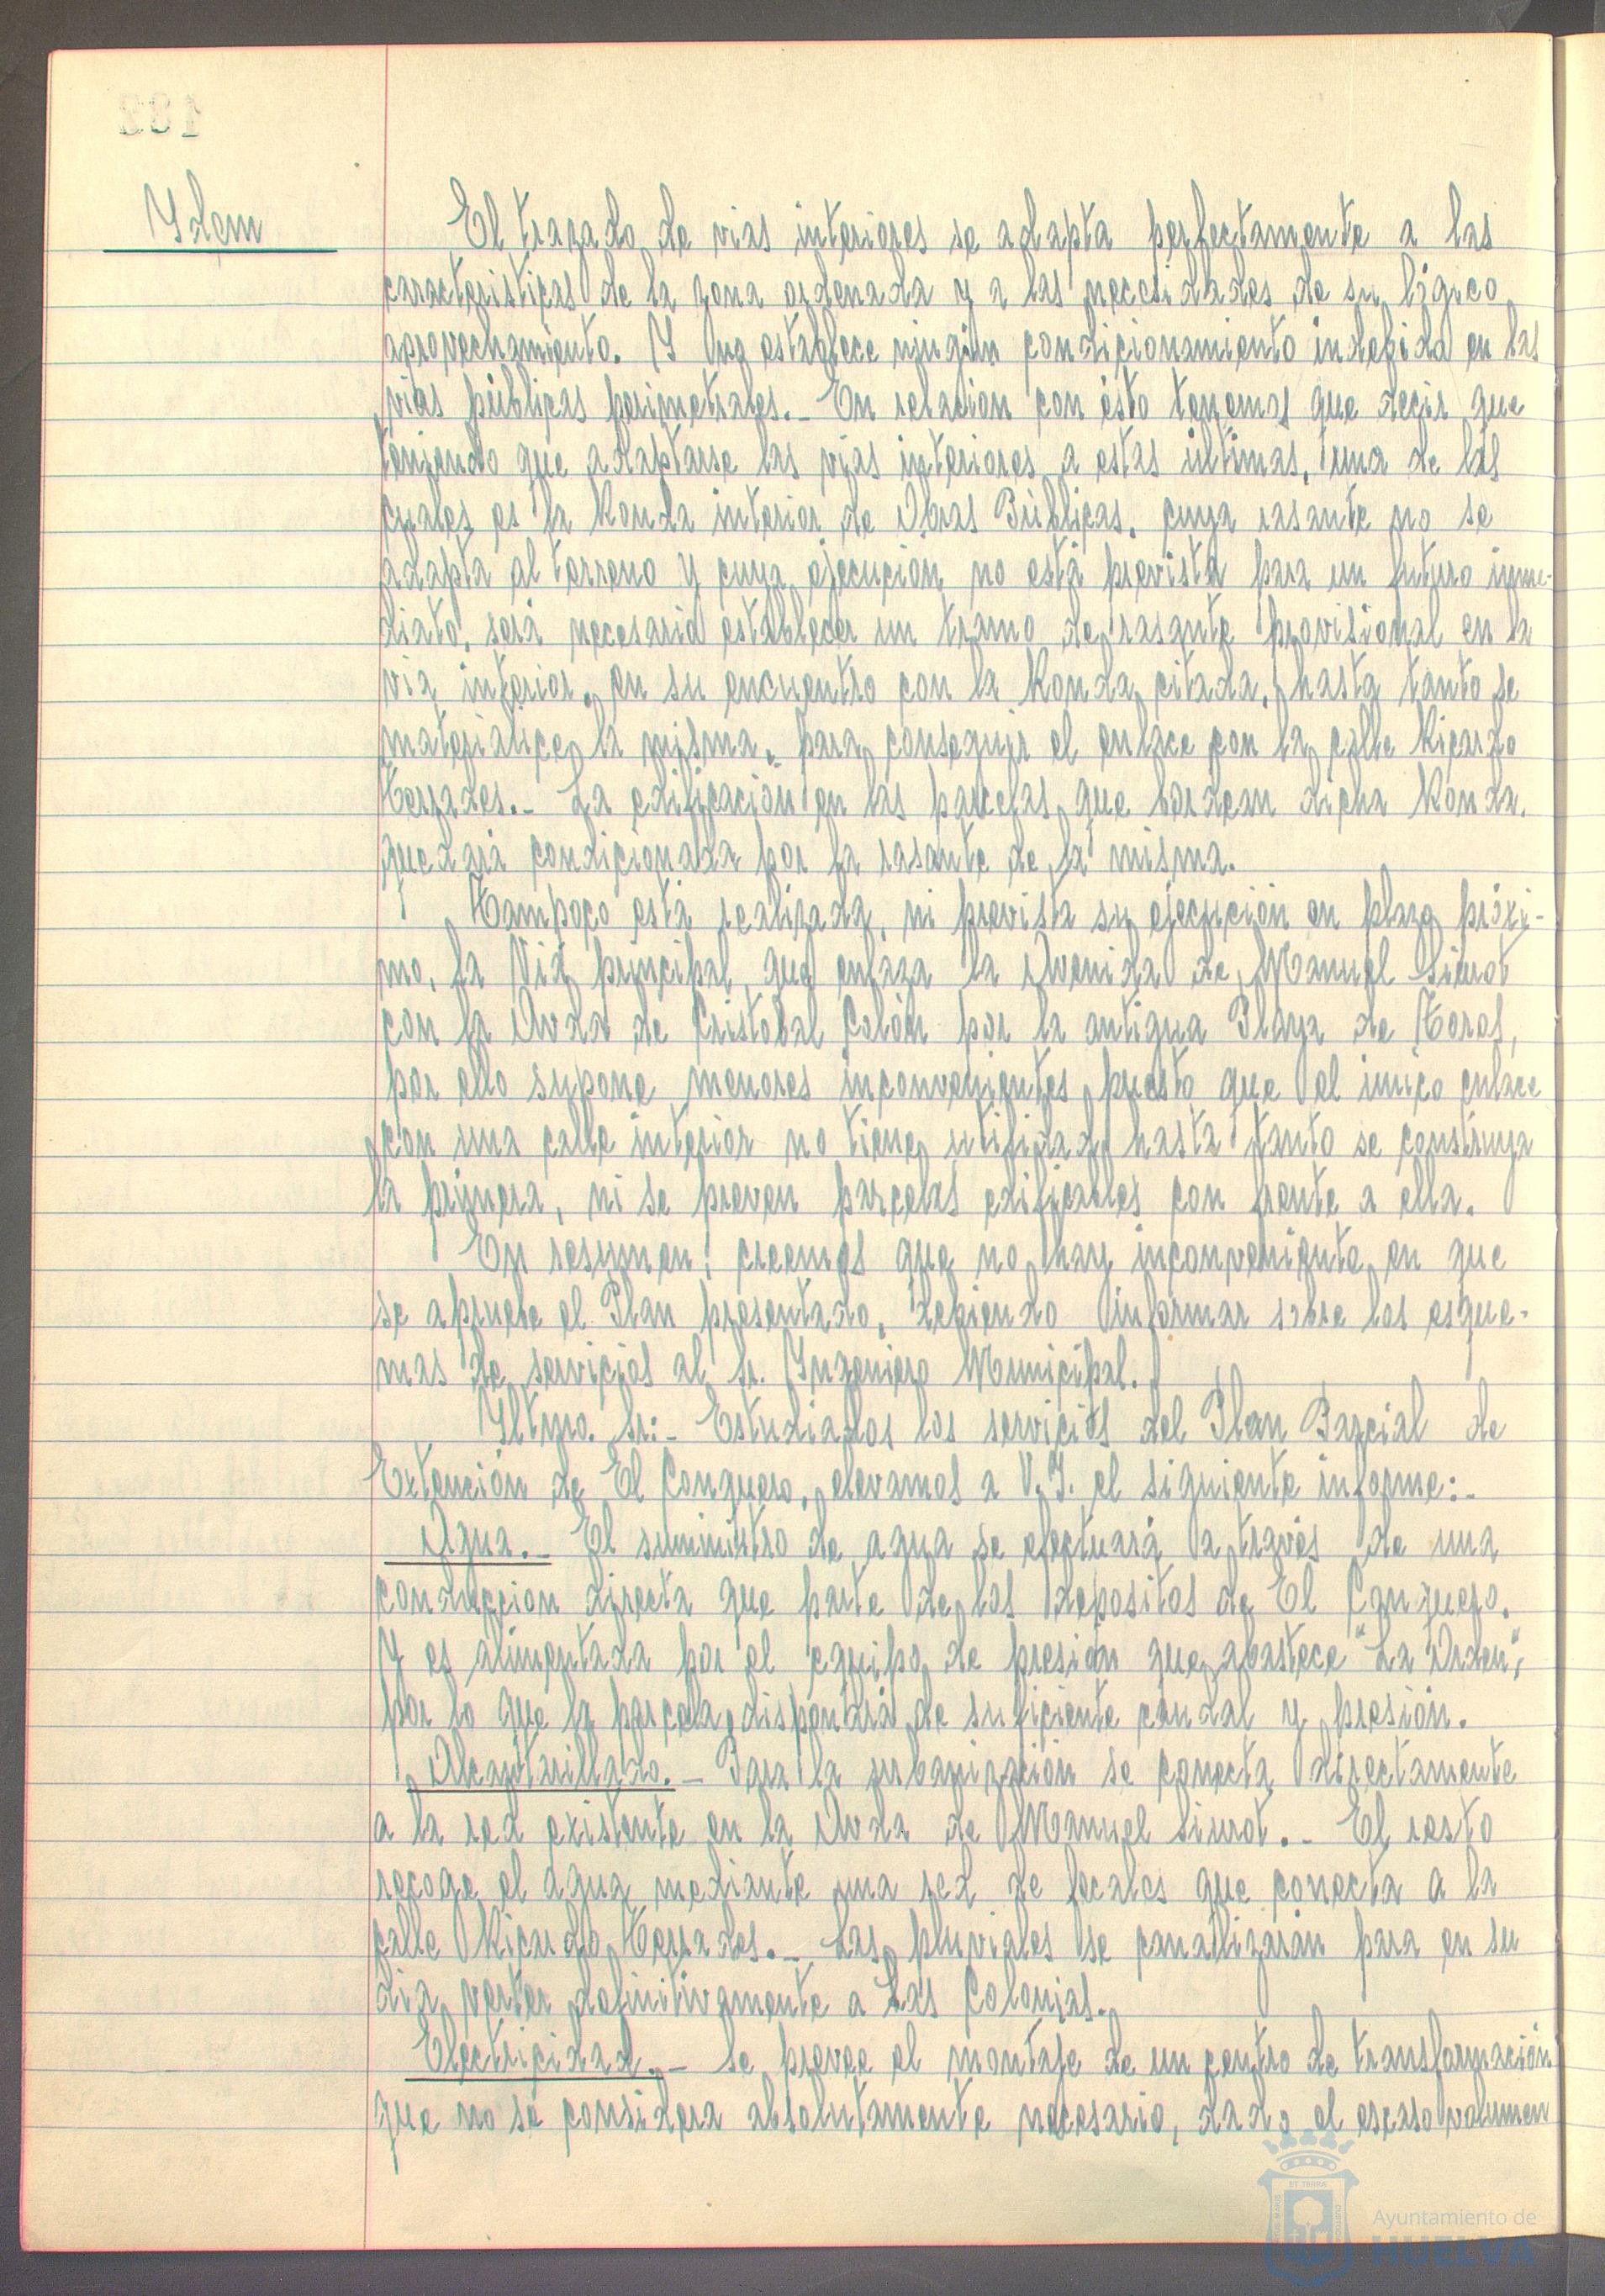 Idem
El trazado de vias interiores se adapta perfectamente a las
caracteristicas de la zona ordenada y a las necesidades de su lógico
aprovechamiento. Y no establece ningún condicionamiento indebido en las
vias públicas perimetrales.- En relación con ésto tenemos que decir que
teniendo que adaptarse las vias interiores a estas últimas, una de las
cuales es la Ronda interior de Obras Públicas, cuya rasante no se
adapta al terreno y cuya ejecución no está prevista para un futuro inme-
diato, será necesario establecer un tramo de rasante provisional en la
via interior, en su encuentro con la Ronda citada, hasta tanto se
materialice la misma, para conseguir el enlace con la calle Ricardo
Terrades.- La edificación en las parcelas que bordean dicha Ronda,
quedará condicionada por la rasante de la misma.
Tampoco está realizada, ni prevista su ejecución en plazo próxi-
mo, la Via principal, que enlaza la Avenida de Manuel Siurot
con la Avda de Cristobal Colón por la antigua Plaza de Toros,
por ello supone menores inconvenientes puesto que el único enlace
con una calle interior no tiene utilidad hasta tanto se construya
la primera, ni se preven parcelas edificables con frente a ella.
En resumen: creemos que no hay inconveniente en que
se apruebe el Plan presentado, debiendo informar sobre los esque-
mas de servicios al Sr. Ingeniero Municipal.
Iltmo. Sr:- Estudiados los servicios del Plan Parcial de
Extención de El Conquero, elevamos a V.I. el siguiente informe:-
Agua.- El suministro de agua se efectuará a través de una
conducción directa que parte de los depositos de El Conquero.
Y es alimentada por el equipo de presión que abastece "La Orden",
por lo que la parcela dispondrá de suficiente caudal y presión.
Alcantarillado.- Para la urbanización se conecta directamente
a la red existente en la Avda de Manuel Siurot.- El resto
recoge el agua mediante una red de fecales que conecta a la
calle Ricardo Terrades.- Las pluviales se canalizarán para en su
dia verter definitivamente a Las Colonias.
Electricidad.- Se prevee el montaje de un centro de transformación
que no se considera absolutamente necesario, dado el escaso volumen
Ayuntamiento de
HUELVA